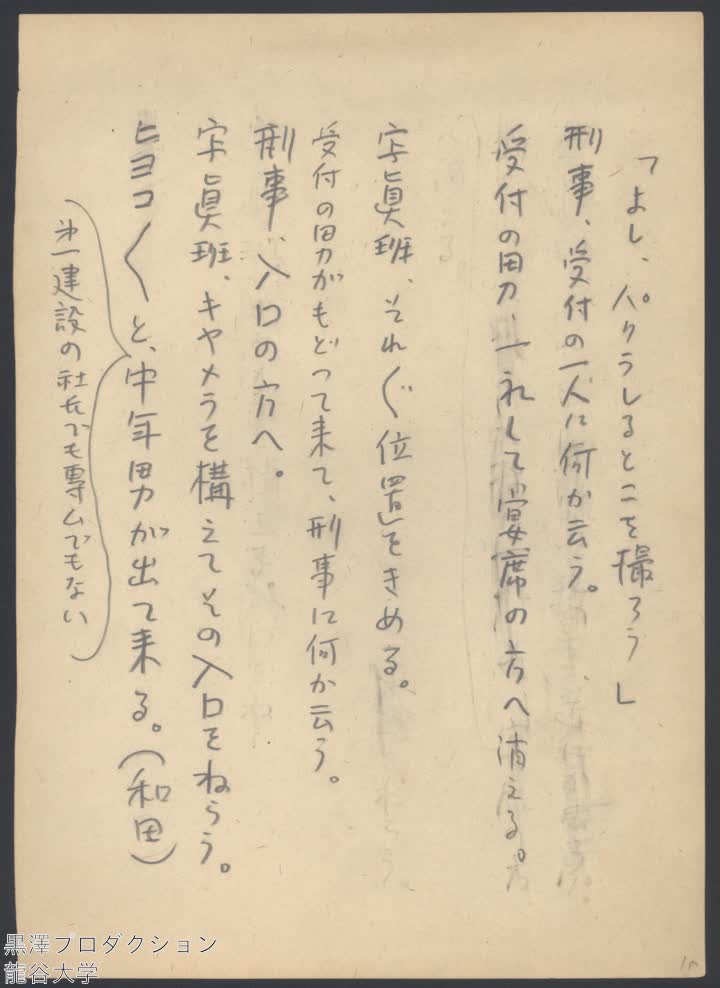 「よし、パクられるとこを撮ろう」
刑事、受付の一人に何か云う。
受付の男、一礼して宴席の方へ消える。
写眞班、それ〴〵位置をきめる。
受付の男がもどって来て、刑事に何か云う。
刑事、入口の方へ。
写眞班、キャメラを構えてその入口をねらう。
ヒョコ〱と、中年男が出て来る。（和田）
（才一建設の社長でも専ムでもない）
黒澤プロダクション
龍谷大学